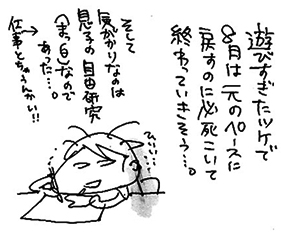 遊びすぎたツケで
8月は元のペースに
戻すのに必死こいて
終わっていきそう…。
そして
気がかりなのは
息子の自由研究
「まっ白」なので
あった…。
→仕事とちゃうんかい!!
ひぃぃぃ